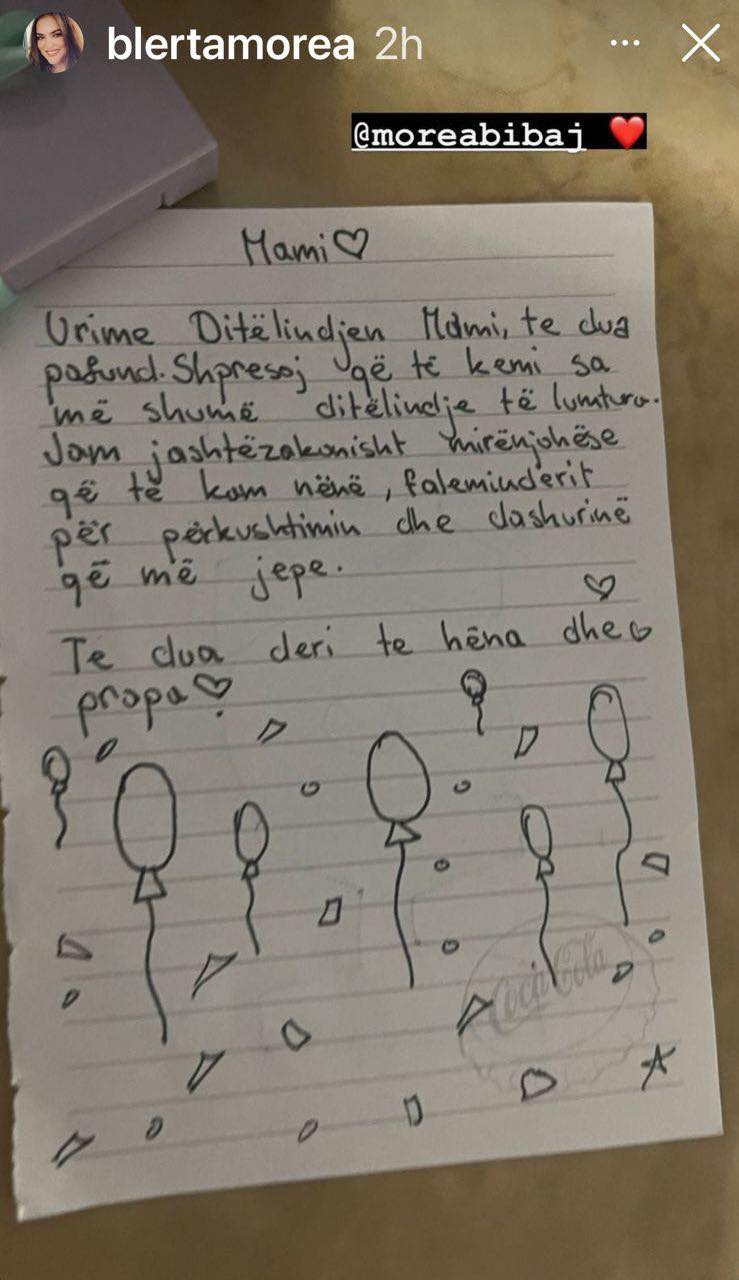 blertamorea 2h
@moreabibaj ❤️
Mami♡
Urime Ditëlindjen Mami, te dua
pafund. Shpresoj që të kemi sa
më shumë ditëlindje të lumtura.
Jam jashtëzakonisht mirënjohëse
që të kam nënë, faleminderit
për përkushtimin dhe dashurinë
që më jepe.
Te dua deri te hëna dhe♡
prapa♡.
Coca Cola